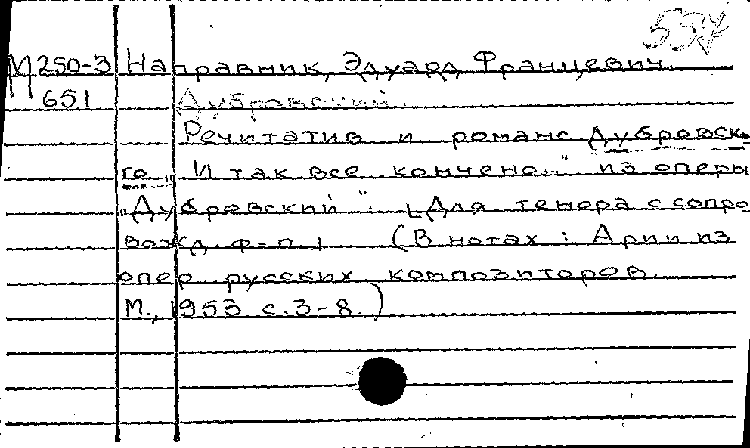 М250-3 Направник, Эдуард Францевич.
651 Дубровский.
Речитатив и романс Дубровск-
го „И так все кончено..." из оперы
„Дубровский". [Для тенора с сопро
вожд. ф-п.] (В нотах: Арии из
опер русских композиторов.
М., 1953 с.3-8.)